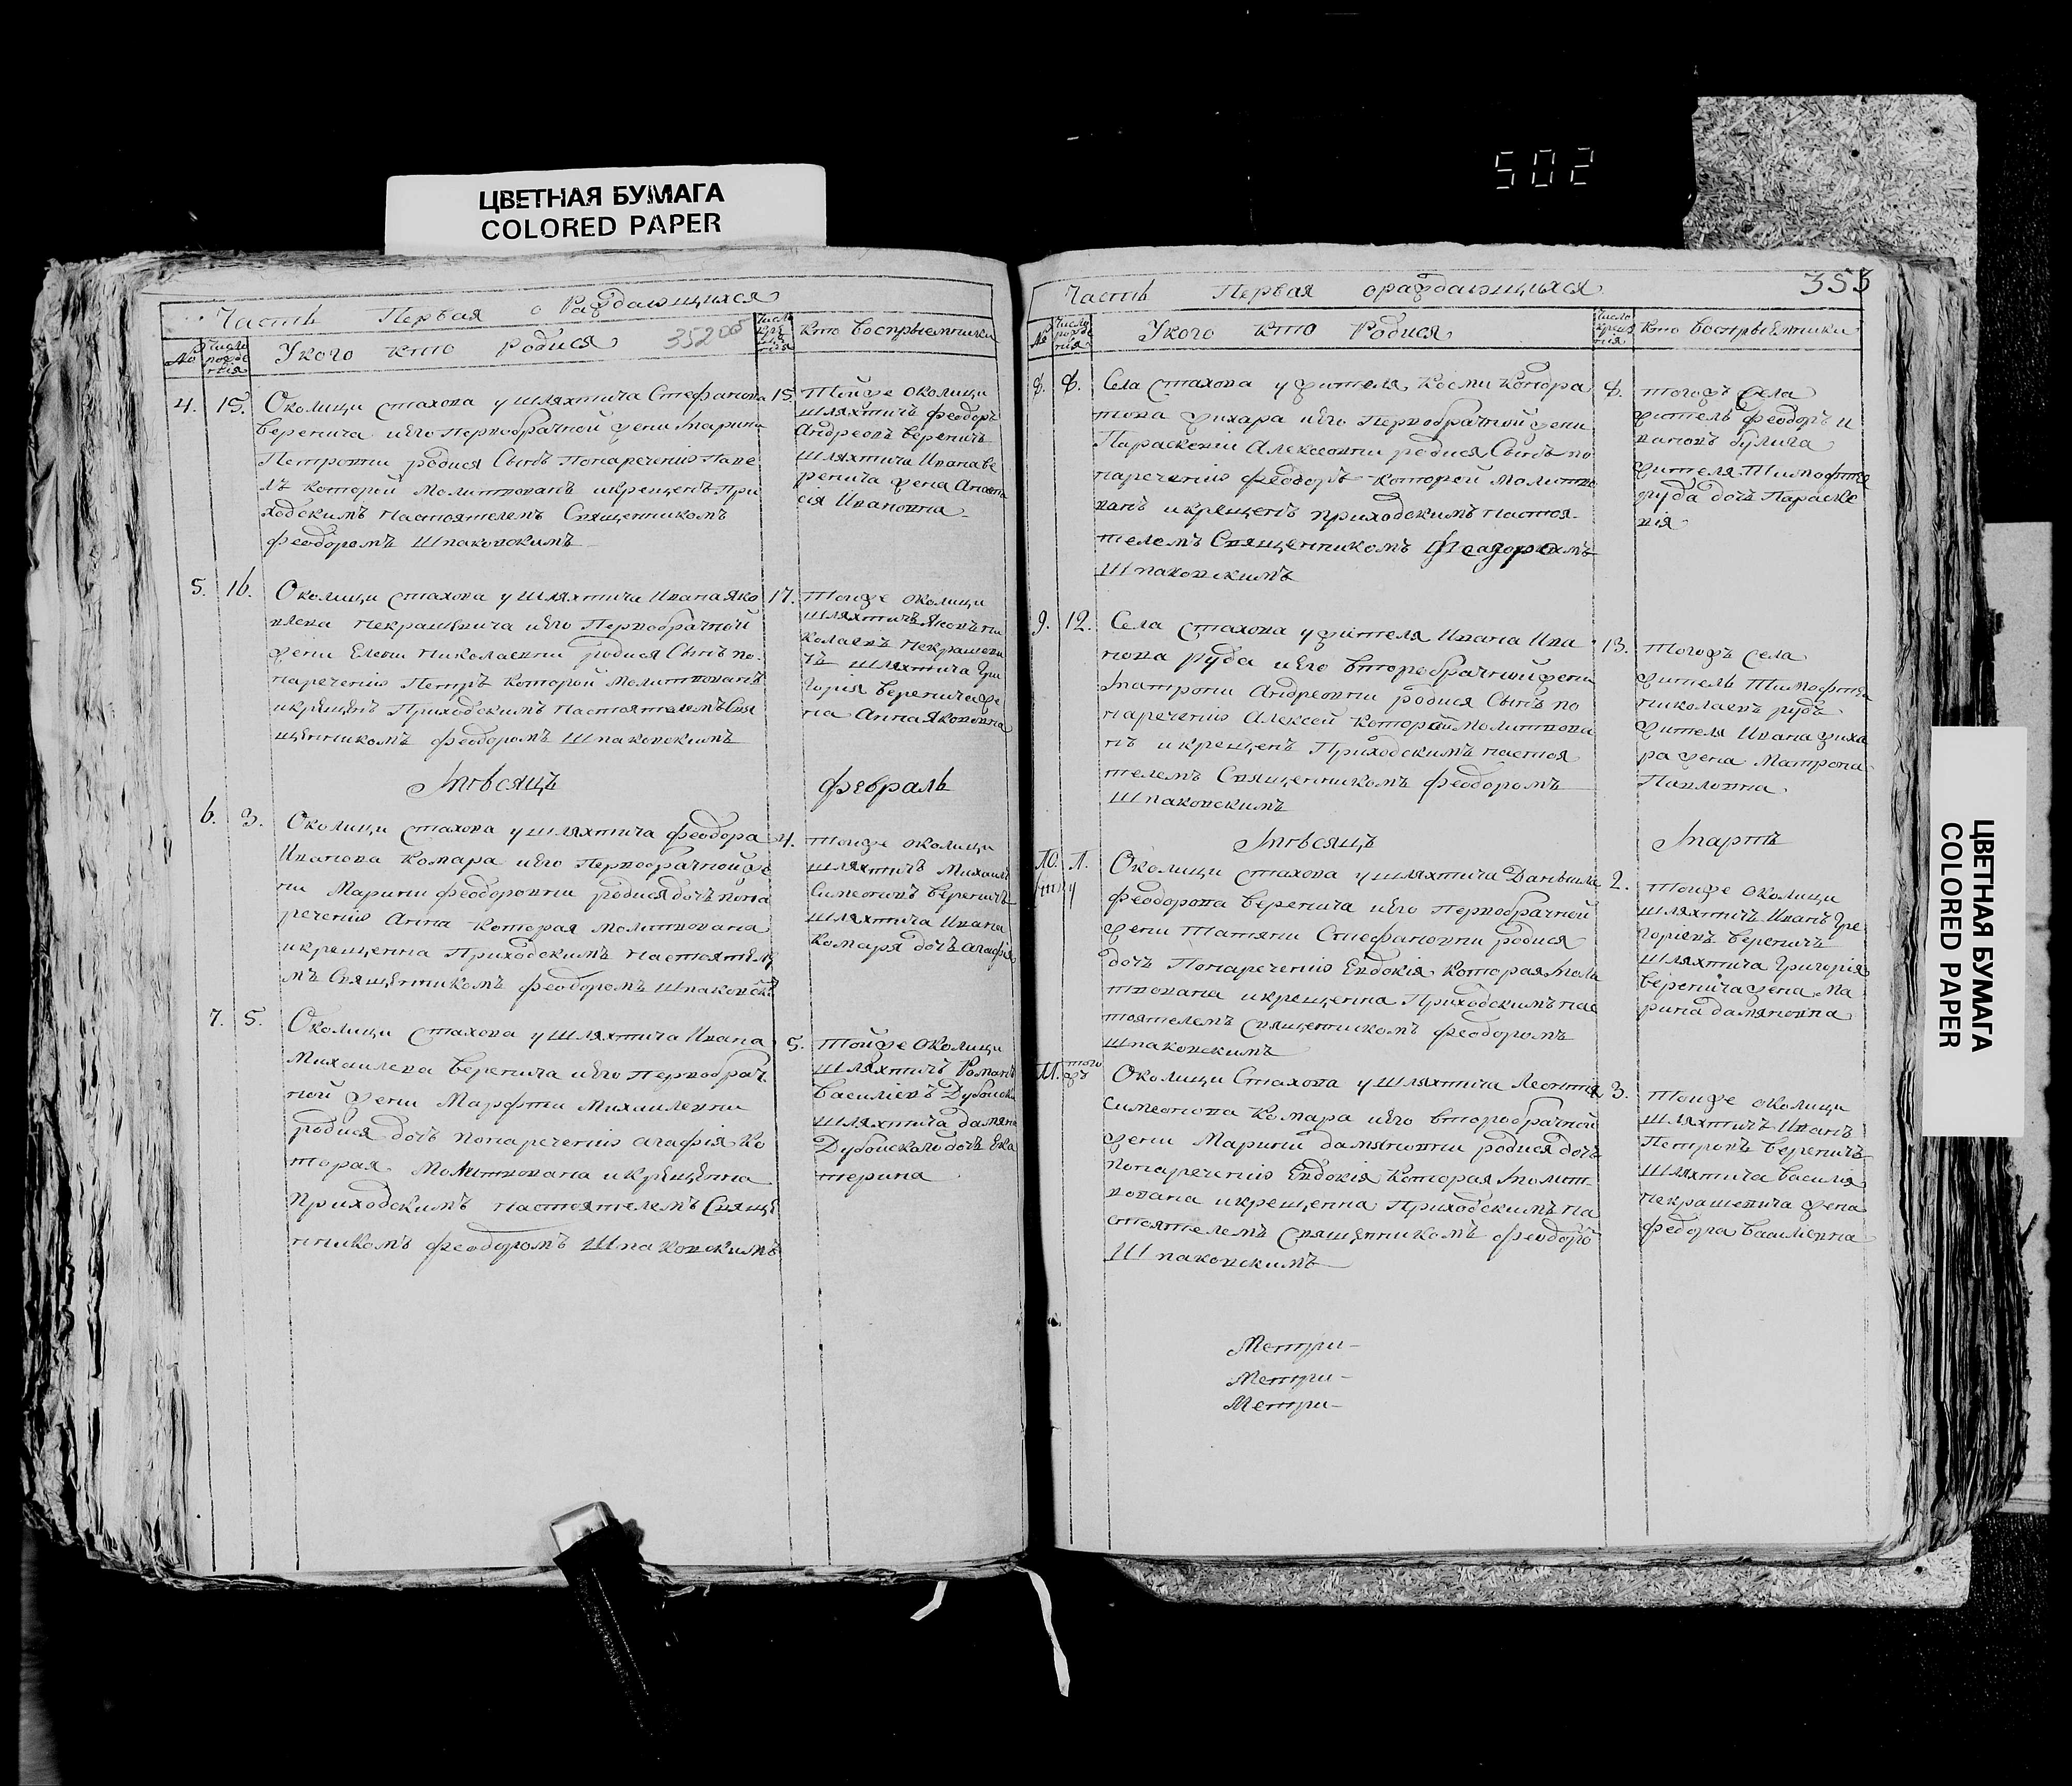 502
ЦВЕТНАЯ БУМАГА
COLORED PAPER
Часть Первая о Раждающихся
352 об
№
Число рожденія
Укого кто Родися
Число крещенія
Кто Восприемники
4. 15.
Околици стахова у шляхтича Стефанова
Веренича иего первобрачной жени Марини
Петровни родися Сынъ понаречению Паве
лъ который молитвованъ икрещенъ При
ходскимъ настоятелемъ Священникомъ
феодоромъ Шпаковскимъ
15.
Тойже околици
шляхтичъ феодоръ
Андреевъ Вереничъ
шляхтича Иванаве
ренича жена Анаста
сія Ивановна
5. 16.
Околици стахова у шляхтича Иванаяко
влева некрашевича иего Первобрачной
жени Елени николаевни родися Сынъ по
наречению Петръ который молитвованъ
икрещенъ Приходскимъ настоятелемъ Свя
щенникомъ феодоромъ Шпаковскимъ
17.
Тоиже околици
шляхтичъ яковъ ни
колаевъ некрашеви
чъ шляхтича Гри
горія Вереничаже
на Анна якововна
Мѣсяцъ
февраль
6. 3.
Околици стахова у шляхтича феодора
Иванова комара иего Первобрачнойже
ни Марини феодоровни родися дочъ пона
речению Анна которая молитвована
икрещенна Приходскимъ настоятеле
мъ Священникомъ феодоромъ Шпаковски
4.
Тоиже околици
шляхтичъ Михаилъ
Симеоновъ Вереничъ
шляхтича Ивана
комаря дочъ агафія
7. 5.
Околици стахова у шляхтича Ивана
Михаилева Веренича иего первобрач
ной жени Марфи Михаилевни
родися дочъ понаречению агафія ко
торая молитвована икрещенна
Приходскимъ настоятелемъ Свяще
нникомъ феодоромъ Шпаковскимъ
5.
Тойже околици
шляхтичъ Романъ
Василіевъ Дубойски
шляхтича дамяна
Дубойскаго дочъ Ека
терина
Часть Первая ораждающихся
353
№
Число рожденія
Укого кто Родися
Число крещенія
Кто Восприемники
8. 8.
Села стахова у жителя Косми Кондра
това жихара иего Первобрачной жени
Параскевии Алексеевни родися Сынъ по
наречению феодоръ который молитво
ванъ икрещенъ приходскимъ настоя
телемъ Священникомъ феодоромъ
Шпаковскимъ
8.
тогожъ села
житель феодоръ И
вановъ булига
жителя Тимофтея
руда дочъ Параске
вія
9. 12.
Села стахова у жителя Ивана Ива
нова руда иего второбрачной жени
Матрони Андреевни родися Сынъ по
наречению Алексей который молитвова
нъ икрещенъ Приходскимъ настоя
телемъ Священникомъ феодоромъ
Шпаковскимъ
13.
тогожъ села
житель Тимофтей
николаевъ рудъ
жителя Ивана жиха
ра жена Матрона
Павловна
Мѣсяцъ
Мартъ
10. 1.
Околици стахова у шляхтича Даніила
феодорова Веренича иего первобрачней
жени Татяни Стефановни родися
дочъ Понаречению Евдокія которая Моли
твована икрещенна Приходскимъ нас
тоятелемъ священникомъ феодоромъ
шпаковскимъ
2.
Тоиже околици
шляхтичъ Иванъ Гри
горіевъ Вереничъ
шляхтича Григорія
Веренича жена Ма
рина дамяновна
11. того жъ
Околици Стахова у шляхтича Леонтия
Симеонова комара иего второбрачной
жени Марини дамяновни родися дочъ
понаречению Евдокія которая молит
вована икрещенна Приходскимъ на
стоятелемъ священникомъ феодоро
Шпаковскимъ
3.
Тоиже околици
шляхтичъ Иванъ
Петровъ Вереничъ
шляхтича Василія
некрашевича жена
федора Василіевна
Метри-
Метри-
Метри-
ЦВЕТНАЯ БУМАГА
COLORED PAPER